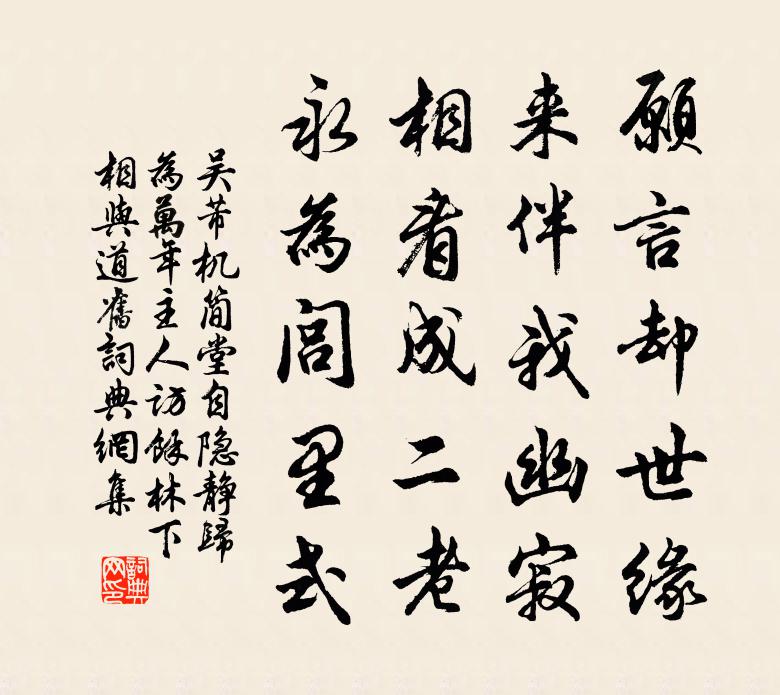 願言却世緣
来伴我幽寂
相看成二老
永為閭里式
吴芾机简堂自隐静歸
為萬年主人访餘林下
相與道舊詞典網集
詞典网印